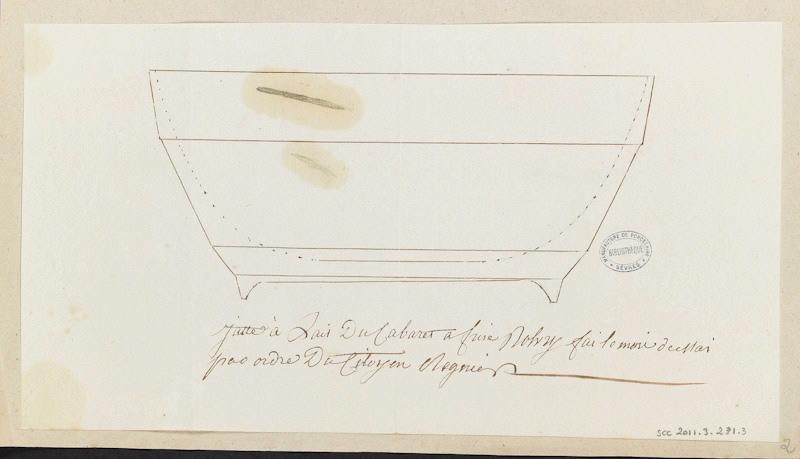 Jatte à Lait Du Cabaret a frise fait le moi de
par ordre Du Citoyen Regnier
MANUFACTURE DE PORCELAINE
BIBLIOTHEQUE
SÈVRES
SCC 2011.3.231.3
2